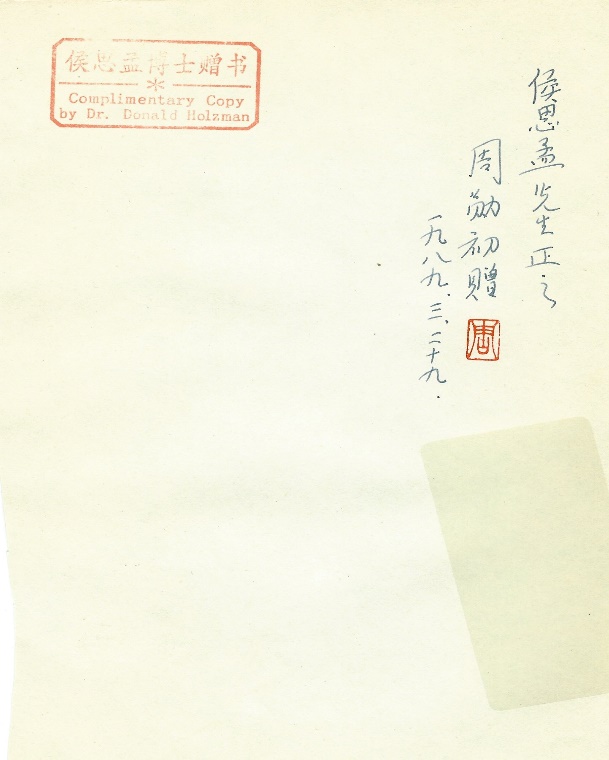 侯思孟博士赠书
Complimentary Copy
by Dr. Donald Holzman
侯思孟先生正之
周勋初赠
周
一九八九.三.二十九.